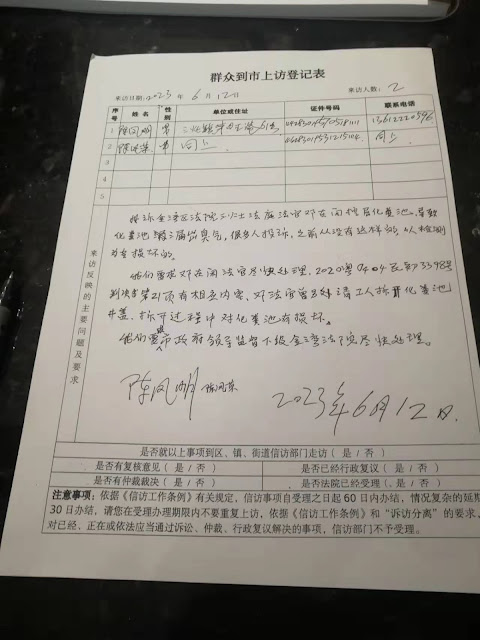 群众到市上访登记表
来访日期:2023 年 6 月 12 日 来访人数: 2
序号 姓 名 性别 单位或住址 证件号码 联系电话
1 陈凤明 男
2 男 同上 同上
3
4
5
来访反映的主要问题及要求
投诉金湾区法院三灶法庭法官邓在闲
化粪池 漏 臭气,很多人投诉,之前从没有这样的
有损坏的。
他们要求邓在闲法官尽快处理,2020粤0404民初3398号
判决书第21页有相关内容,邓法官曾 请工人拆开化粪池
井盖,拆开过程中对化粪池有损坏。
他们要 市政府领导监督下级金湾法院尽快处理。
陈凤明 2023年6月12日.
是否就以上事项到区、镇、街道信访部门走访(是/否)
是否有复核意见(是/否) 是否已经行政复议(是/否)
是否有仲裁裁决(是/否) 是否法院已经受理(是/否)
注意事项:依据《信访工作条例》有关规定,信访事项自受理之日起 60 日内办结,情况复杂的延期
30 日办结,请您在受理办理期限内不要重复上访,依据《信访工作条例》和“诉访分离”的要求,
对已经、正在或依法应当通过诉讼、仲裁、行政复议解决的事项,信访部门不予受理。